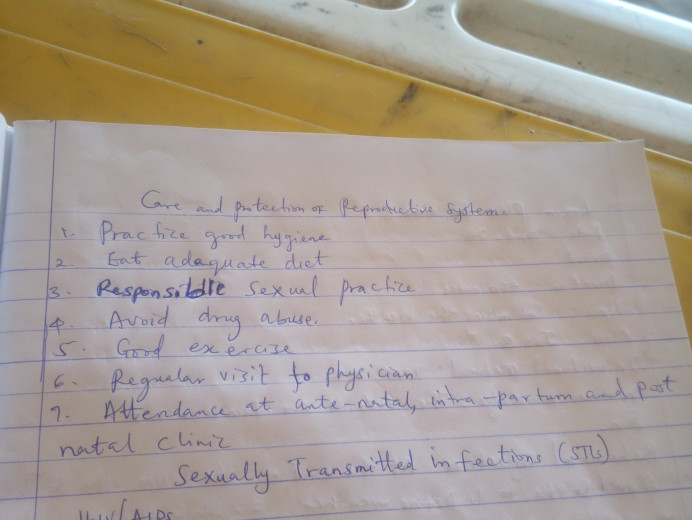 Care and protection of Reproductive System.
1. Practice good hygiene
2. Eat adequate diet
3. Responsible Sexual practice
4. Avoid drug abuse.
5. Good exercise
6. Regular visit to physician
7. Attendance at ante-natal, intra-partum and post
natal clinic
Sexually Transmitted infections (STIs)
HIV/AIDS